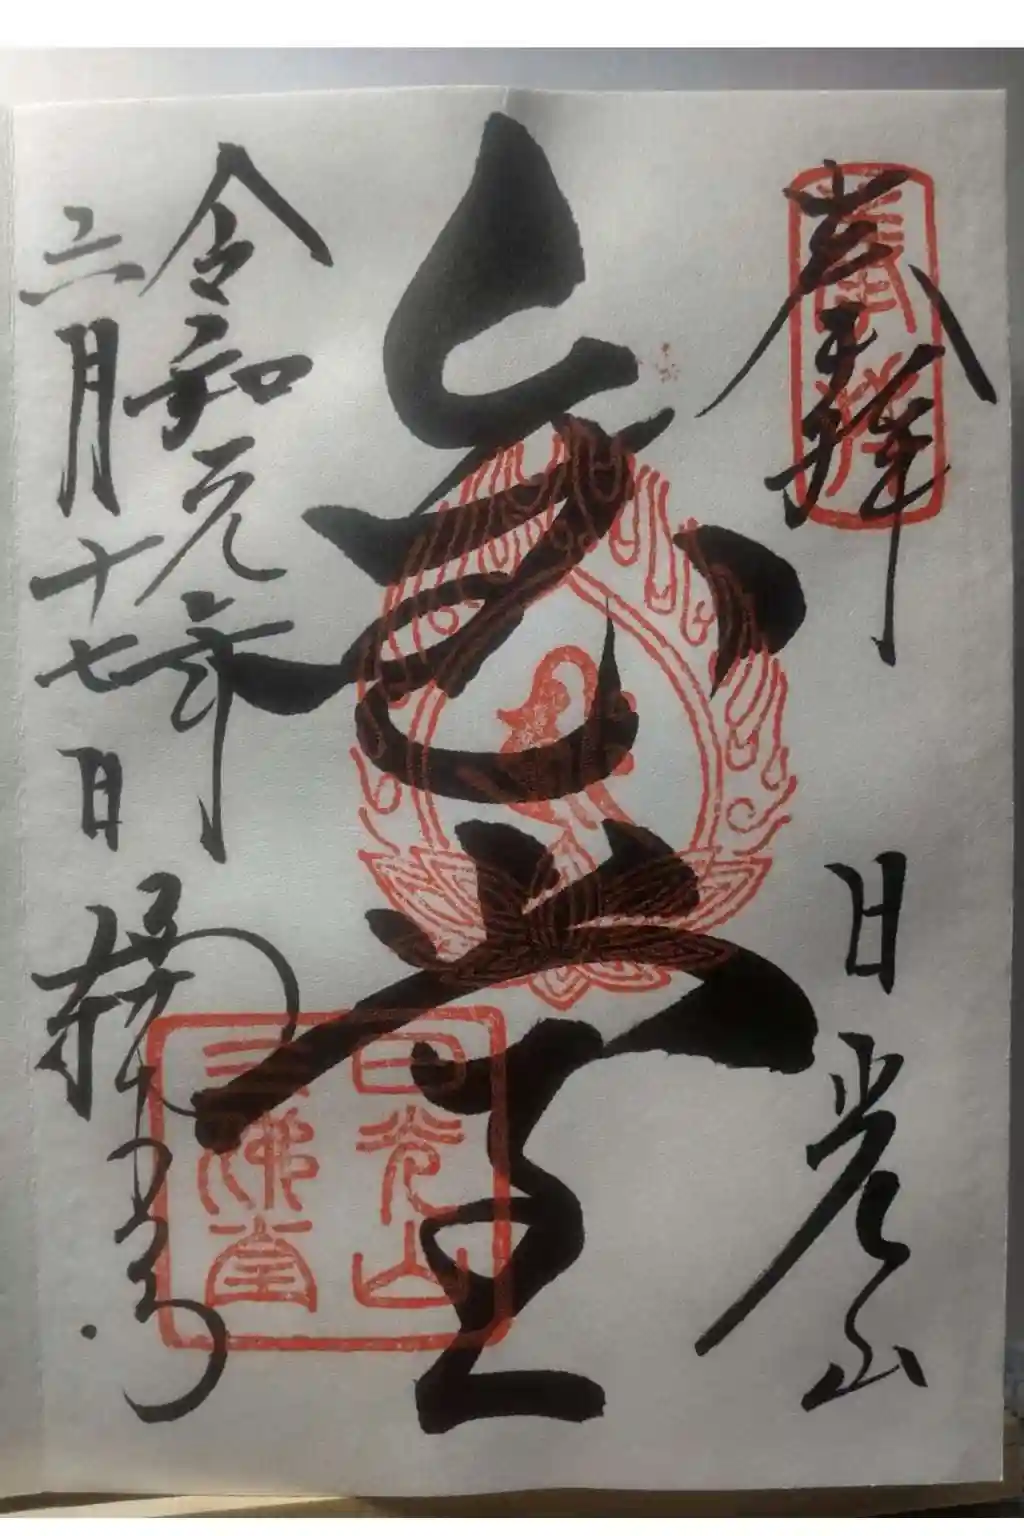 奉拝
日光山
金堂
令和元年
六月十七日
奉拝
日光山
三佛堂